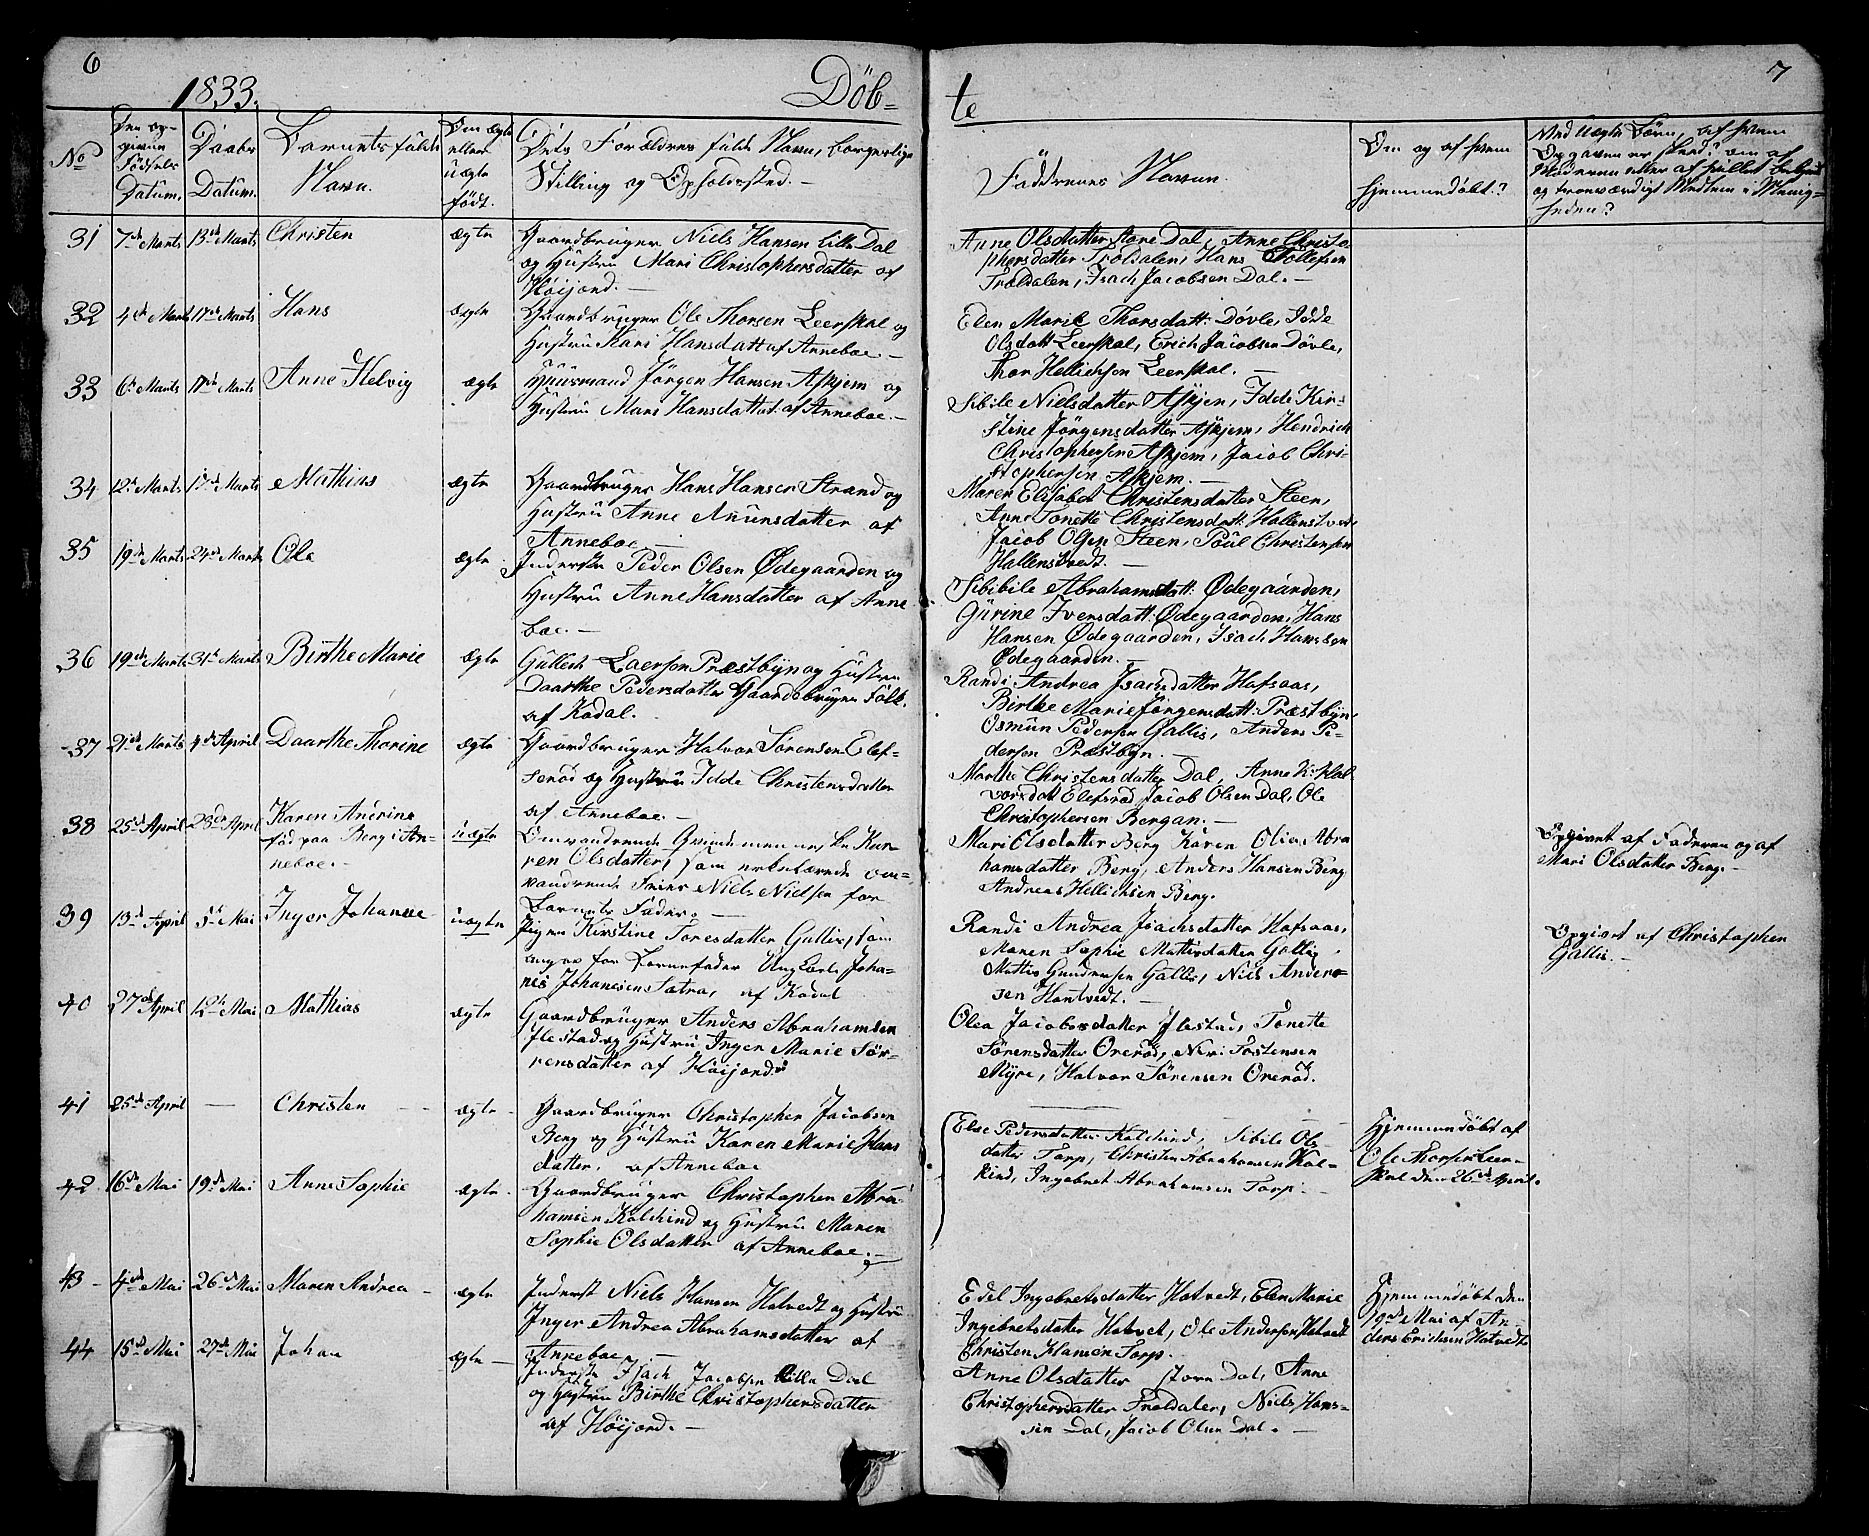 6
1833.
Döb-
te
7
No
Den an-
givne
Födsels
Datum.
Daabs
Datum.
Barnets fulde
Navn.
Om ægte
eller
uægte
födt.
Dets Forældres fulde Navn, borgerlige
Stilling og Opholdssted.
Faddernes Navne.
Om og af hvem
hjemmedöbt?
Ved uægte Börn, af hvem
Opgaven er skeed? om af
Moderen eller af heelt bekjendt
og troeværdigt Medlem i Menig-
heden?
31 7de Marts 13de Marts Christen ægte Gaardbruger Niels Hansen Lille Dal
og Hustru Mari Christophersdatter af
Höijord.
Anne Olsdatter store Dal, Anne Christo-
phersdatter Troldalen, Hans Tollefsen
Troldalen, Isach Jacobsen Dal.
32 4de Marts 17de Marts Hans ægte Gaardbruger Ole Thorsen Leerskal og
Hustru Kari Hansdatt af Anneboe.
Elen Marie Thorsdatt: Døvle, Idde
Olsdatt Leerskal, Erich Jacobsen Døvle,
Thor Hellichsen Leerskal.
33 6te Marts 17de Marts Anne Helvig ægte Huusmand Jörgen Hansen Askjem og
Hustru Mari Hansdatter af Anneboe.
Sibile Nielsdatter Askjem, Idde Kir-
stine Jörgensdatter Askjem, Hendrich
Christophersen Askjem, Jacob Chri-
stophersen Askjem.
34 12te Marts 17de Marts Mathias ægte Gaardbruger Hans Hansen Strand og
Hustru Anne Amunsdatter af
Anneboe.
Maren Elisabet Christensdatter Steen,
Anne Tonette Christensdatt: Hallenstvedt
Jacob Olsen Steen, Poul Christensen
Hallenstvedt.
35 19de Marts 24de Marts Ole ægte Inderste Peder Olsen Ødegaarden og
Hustru Anne Hansdatter af Anne
boe.
Sibibile Abrahamsdatt: Ødegaarden,
Gurine Iversdatt: Ødegaarden, Hans
Hansen Ødegaarden, Isach Hanssen
Ødegaarden.
36 19de Marts 31te Marts Birthe Marie ægte Gullich Laersen Præstbyn og Hustru
Daarthe Pedersdatter Gaardbruger Folk
af Kodal.
Randi Andrea Isachsdatter Hafsaas,
Birthe Marie Jörgensdatt: Præstbyn,
Osmun Pedersen Gallis, Anders Pe-
dersen Præstbyn.
37 21de Marts 4de April Daarthe Thorine ægte Gaardbruger Halvor Sörensen Elef-
seröd og Hustru Idde Christensdatter
af Anneboe.
Marthe Christensdatter Dal, Anne K: Hal
vorsdatt Elefsröd Jacob Olsen Dal, Ole
Christophersen Bergan.
38 25de April 28de April Karen Anerine
föd paa Berg i An-
neboe.
uægte Omvandrende Qvindemenneske Ka-
ren Olsdatter, som erklærede om-
vandrende Frier Niels Nielsen for
Barnets Fader.
Mari Olsdatter Berg Karen Olia Abra
hamsdatter Berg, Anders Hansen Berg
Andreas Hellichsen Berg.
Opgivet af Faderen og af
Mari Olsdatter Berg.
39 13de April 5te Mai Inger Johanne uægte Pigen Kirstine Toresdatter Gallis, som
angav for Barnefader Ungkarl Joha-
nes Johanesen Sætra, af Kodal
Randi Andrea Isachsdatter Hafsaas,
Maren Sophie Mathisdatter Gallis,
Mathis Gundersen Gallis, Niels Ander-
sen Hantvedt.
Opgivet af Christopher
Gallis.
40 27de April 12te Mai Mathias ægte Gaardbruger Anders Abrahamsen
Ilestad og Hustru Inger Marie Sör-
rensdatter af Höijord.
Olea Jacobsdatter Ilestad, Tonette
Sörensdatter Oreröd, Neri Tostensen
Myre, Halvor Sörensen Oreröd.
41 25de April — Christen ægte Gaardbruger Christopher Jacobsen
Berg og Hustru Karen Marie Hans
datter, af Anneboe
Hjemmedöbt af
Ole Thorsen Leer-
skal den 26de April.
42 16de Mai 19de Mai Anne Sophie ægte Gaardbruger Christopher Abra-
hamsen Kolkind og Hustru Maren
Sophie Olsdatter af Anneboe.
Else Pedersdatter Kolkind, Sibile Ols
datter Torp, Christen Abrahamsen Kol-
kind, Ingebret Abrahamsen Torp.
43 4de Mai 26de Mai Maren Andrea ægte Inderst Niels Hansen Hotvedt og Hustru
Inger Andrea Abrahamsdatter af
Anneboe
Edel Ingebretsdatter Hotvedt, Elen Marie
Ingebretsdatter Hotvet, Ole Andersen Hotvedt
Christen Hansen Torp.
Hjemmedöbt den
19de Mai af An-
ders Erichsen Hotvedt
44 15de Mai 27de Mai Johan ægte Inderste Isach Jacobsen Lille Dal
og Hustru Birthe Christophersdatter
af Höijord.
Anne Olsdatter store Dal, Anne
Christophersdatter Troldalen, Niels Han-
sen Dal, Jacob Olsen Dal.